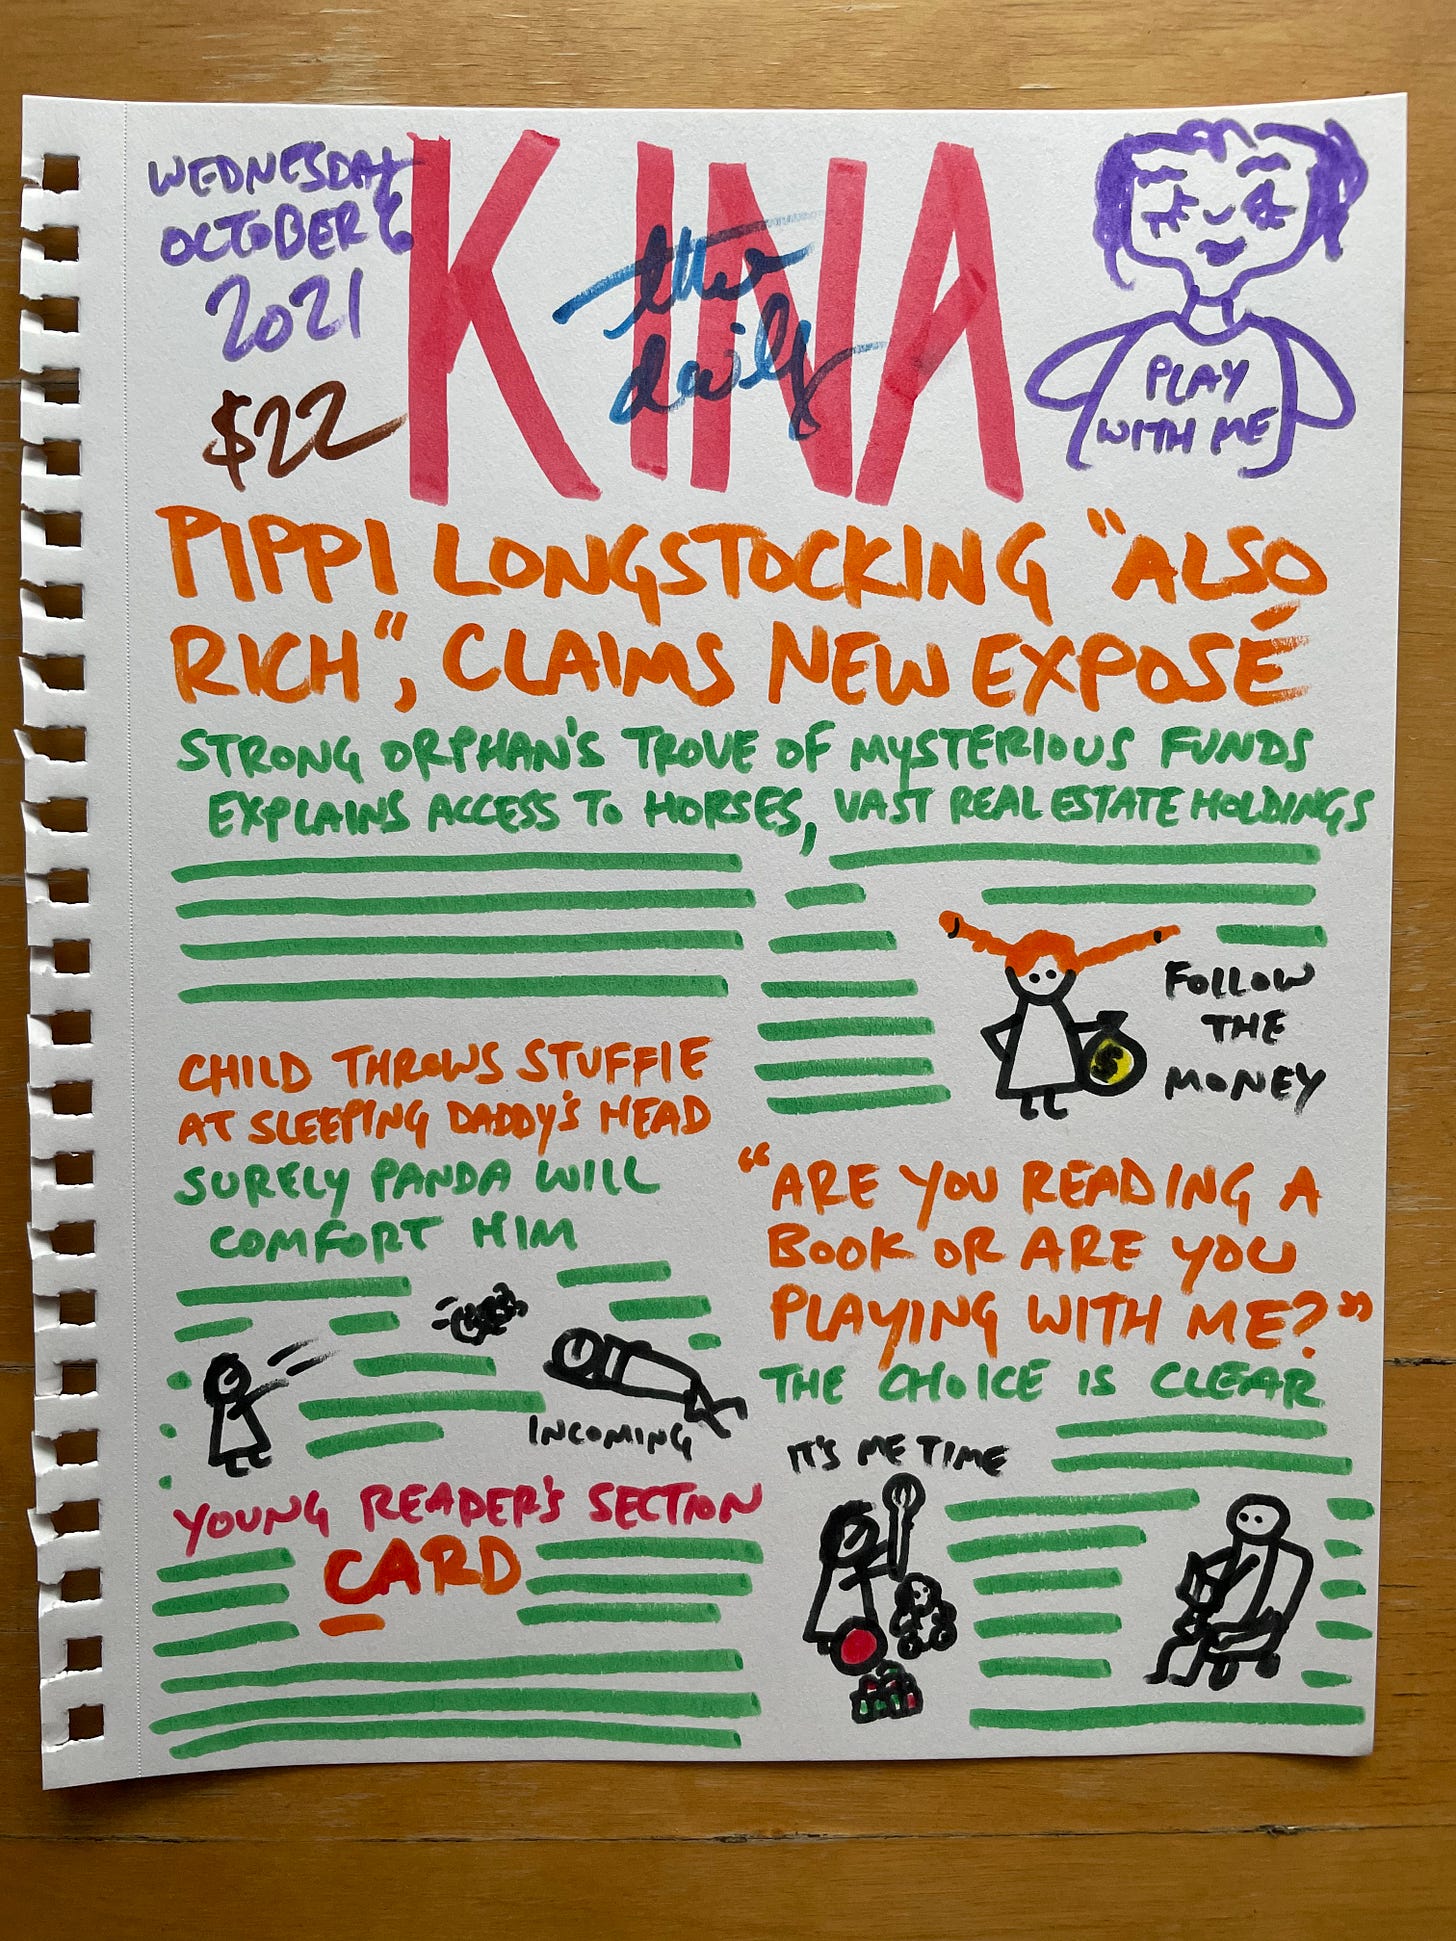 WEDNESDAY
OCTOBER 6
2021
$22
KINA
the
daily
PLAY
WITH ME
PIPPI LONGSTOCKING "ALSO
RICH", CLAIMS NEW EXPOSÉ
STRONG ORPHAN'S TROVE OF MYSTERIOUS FUNDS
EXPLAINS ACCESS TO HORSES, VAST REAL ESTATE HOLDINGS
FOLLOW
THE
MONEY
$
CHILD THROWS STUFFIE
AT SLEEPING DADDY'S HEAD
SURELY PANDA WILL
COMFORT HIM
INCOMING
YOUNG READER'S SECTION
CARD
"ARE YOU READING A
BOOK OR ARE YOU
PLAYING WITH ME?"
THE CHOICE IS CLEAR
IT'S ME TIME